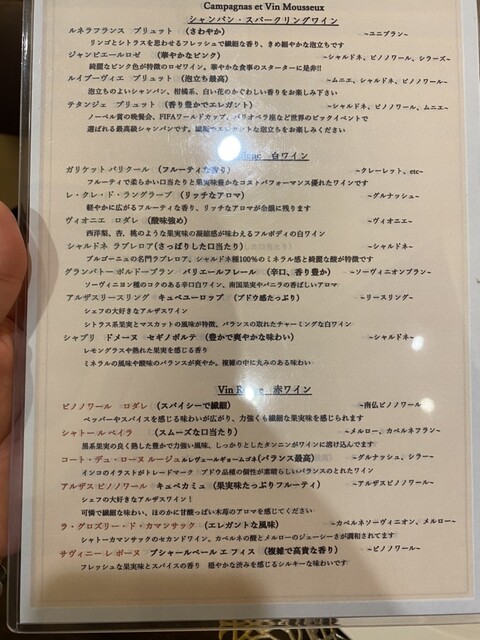 Campagnas et Vin Mousseux
シャンパン・スパークリングワイン
ルネラフランス ブリュット (さわやか) ~ユニブラン~
リンゴとシトラスを思わせるフレッシュで繊細な香り、きめ細やかな泡立ちです
ジャンピエールロゼ (華やかなピンク) ~シャルドネ、ピノノワール、シラーズ~
綺麗なピンク色が特徴のロゼワイン。華やかな食事のスターターに是非!!
ルイプーヴィエ ブリュット (泡立ち最高) ~ムニエ、シャルドネ、ピノノワール~
泡立ちのよいシャンパン、柑橘系、白い花のかぐわしい香りをお楽しみ下さい
テタンジェ ブリュット (香り豊かでエレガント) ~シャルドネ、ピノノワール、ムニエ~
ノーベル賞の晩餐会、FIFAワールドカップ、パリオペラ座など世界のビックイベントで
選ばれる最高級シャンパンです。繊細でエレガントな泡立ちをお楽しみください
白ワイン
ガリケット パリクール (フルーティな香り) ~クレーレット、etc~
フルーティで柔らかい口当たりと果実味豊かなコストパフォーマンス優れたワインです
レ・クレ・ド・ラングラーブ (リッチなアロマ) ~グルナッシュ~
軽やかに広がるフルーティな香り、リッチなアロマが余韻に残ります
ヴィオニエ ロダレ (酸味強め) ~ヴィオニエ~
西洋梨、杏、桃のような果実味の凝縮感が味わえるフルボディの白ワイン
シャルドネ ラブレロア (さっぱりした口当たり) ~シャルドネ~
ブルゴーニュの名門ラブレロア、シャルドネ種100%のミネラル感と綺麗な酸が特徴です
グランバトー ボルドーブラン バリエールフレール (辛口、香り豊か) ~ソーヴィニオンブラン~
ソーヴィニヨン種のコクのある辛口白ワイン、南国果実やバニラの香ばしいアロマ
アルザスリースリング キュベユーロップ (ブドウ感たっぷり) ~リースリング~
シェフの大好きなアルザスワイン
シトラス系果実とマスカットの風味が特徴。バランスの取れたチャーミングな白ワイン
シャブリ ドメーヌ セギノボルテ (豊かで爽やかな味わい) ~シャルドネ~
レモングラスや熟れた果実を感じる香り
ミネラルの風味や酸味のバランスが爽やか。複雑の中に丸みのある味わい
Vin Rouge 赤ワイン
ピノノワール ロダレ (スパイシーで繊細) ~南仏ピノノワール~
ペッパーやスパイスを感じる味わいが広がり、力強くも繊細な果実味を感じられます
シャトールベイラ (スムーズな口当たり) ~メルロー、カベルネフラン~
黒系果実の良く熟した豊かで力強い風味、しっかりとしたタンニンがワインに溶け込んでます
コート・デュ・ローヌ ルージュ ルレヴェールギョームゴネ (バランス最高) ~グルナッシュ、シラー~
インコのイラストがトレードマーク ブドウ品種の個性が素晴らしいバランスのとれたワイン
アルザス ピノノワール キュベカミュ (果実味たっぷりフルーティ) ~アルザスピノノワール~
シェフの大好きなアルザスワイン!
可憐で繊細な味わい、ほのかに甘酸っぱい木苺のアロマを感じてください
ラ・グロズリー・ド・カマンサック (エレガントな風味) ~カベルネソーヴィニオン、メルロー~
シャトーカマンサックのセカンドワイン、カベルネの酸とメルローのジューシーさが調和されてます
サヴィニー レ ボーヌ プシャールペール エ フィス (複雑で高貴な香り) ~ピノノワール~
フレッシュな果実味とスパイスの香り 穏やかな渋みを感じるシルキーな味わいです